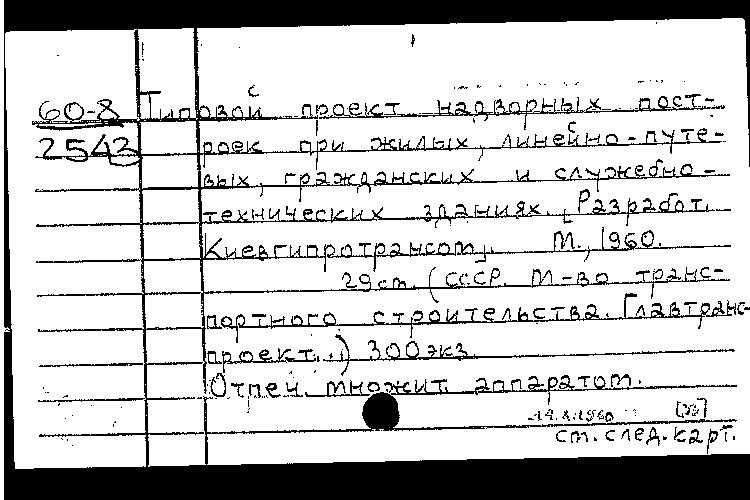 60-8 Типовой проект надворных пост-
2543 роек при жилых, линейно-путе-
вых, гражданских и служебно-
технических зданиях. [Разработ.
Киевгипротрансом]. М., 1960.
29 ст. (СССР. М-во транс-
портного строительства. Главтранс-
проект...) 300 экз.
Отпеч. множит. аппаратом.
ст. след. карт.